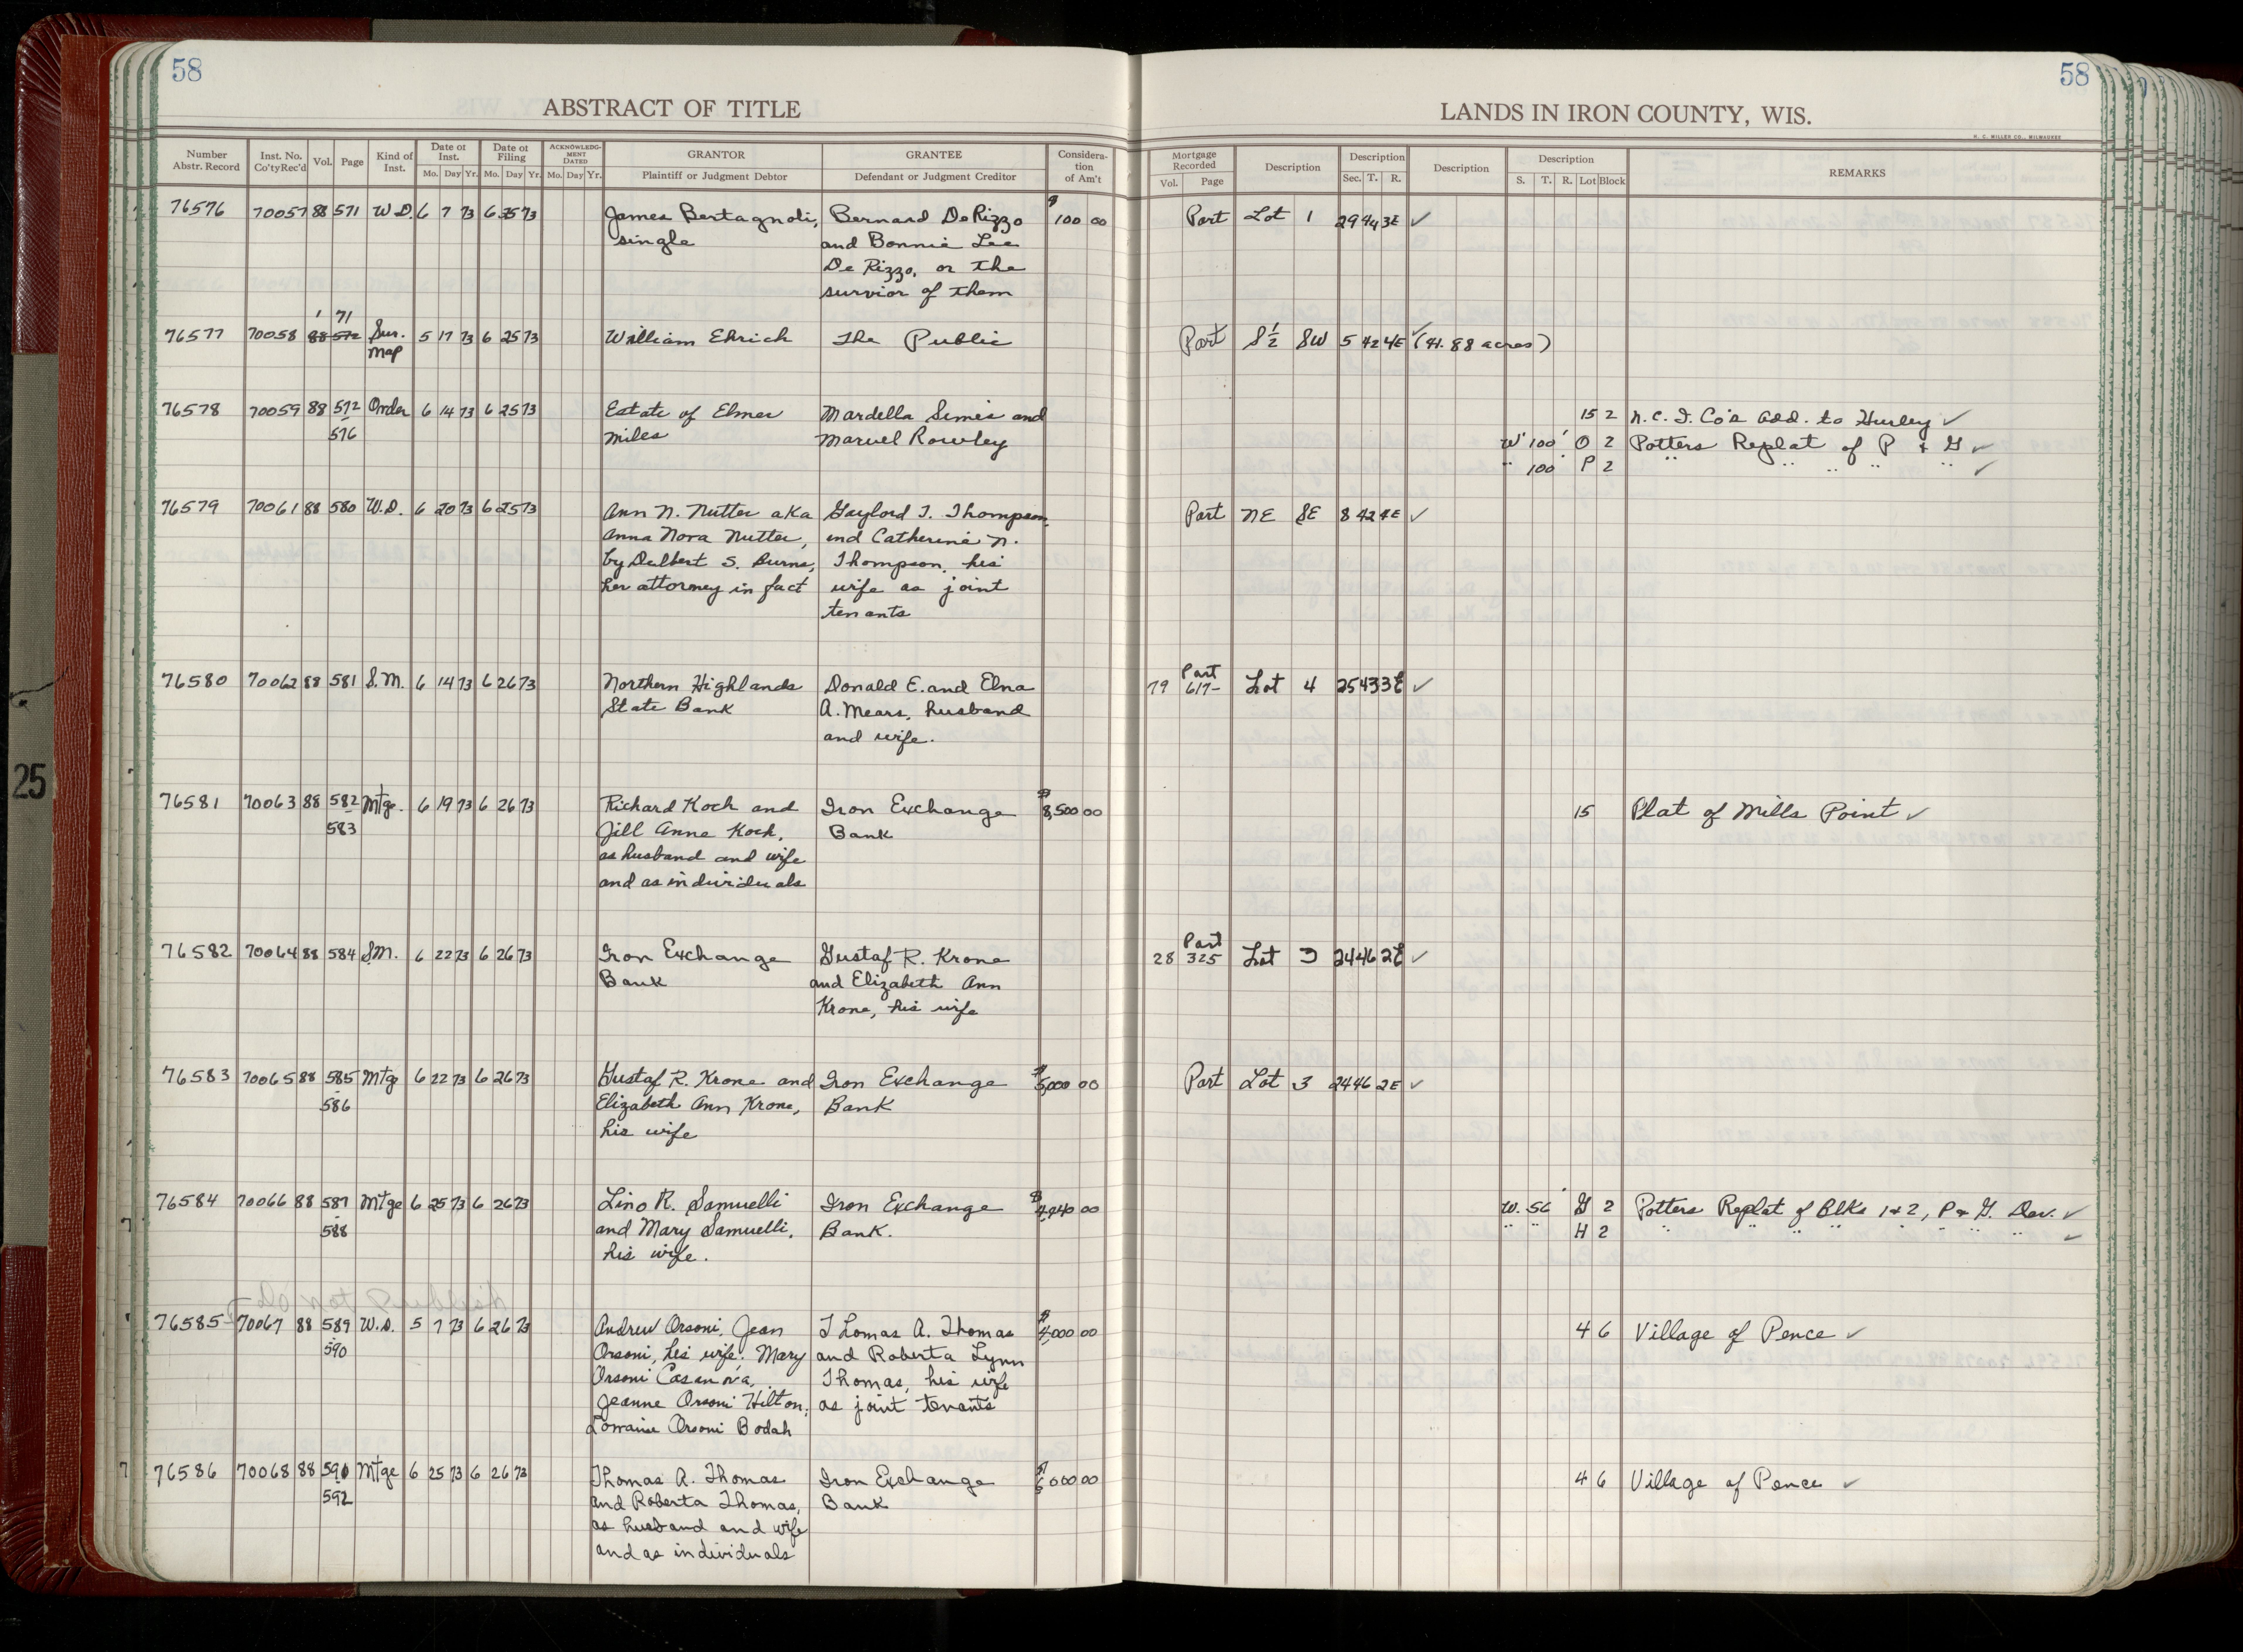 58
58
ABSTRACT OF TITLE
LANDS IN IRON COUNTY, WIS.
H. C. MILLER CO., MILWAUKEE
Number Abstr. Record
Inst. No. Co'ty Rec'd
Vol.
Page
Kind of Inst.
Date of Inst.
Mo. Day Yr.
Date of Filing
Mo. Day Yr.
ACKNOWLEDG-MENT DATED
Mo. Day Yr.
GRANTOR
Plaintiff or Judgment Debtor
GRANTEE
Defendant or Judgment Creditor
Considera-tion of Am't
Mortgage Recorded
Vol. Page
Description
Description
Sec. T. R.
Description
Description
S. T. R. Lot Block
REMARKS
76576 70057 88 571 W.D. 6 7 73 6 25 73 James Bertagnoli, Bernard De Rizzo $100 00 Part Lot 1 29 44 3E ✓
single and Bonnie Lee
De Rizzo, or the
survior of them
1 71
76577 70058 88 572 Sur. 5 17 73 6 25 73 William Ehrich The Public Part S½ SW 5 42 4E ✓ (41.88 acres)
Map
76578 70059 88 572 Order 6 14 73 6 25 73 Estate of Elmer Mardella Simes and 15 2 N.C.I. Co's Add. to Hurley ✓
576 Miles Marvel Rowley W 100' O 2 Potters Replat of P & G ✓
" 100' P 2 " " " " " ✓
76579 70061 88 580 W.D. 6 20 73 6 25 73 Ann N. Nutter aka Gaylord T. Thompson Part NE SE 8 42 4E ✓
Anna Nora Nutter, and Catherine N.
by Delbert S. Burns, Thompson, his
her attorney in fact wife as joint
tenants
76580 70062 88 581 S.M. 6 14 73 6 26 73 Northern Highlands Donald E. and Elna 79 Part 617- Lot 4 25 43 3E ✓
State Bank A. Mears, husband
and wife.
25
76581 70063 88 582 Mtge. 6 19 73 6 26 73 Richard Koch and Iron Exchange $8,500 00 15 Plat of Mills Point ✓
583 Jill Anne Koch, Bank
as husband and wife
and as individuals
76582 70064 88 584 S.M. 6 22 73 6 26 73 Iron Exchange Gustaf R. Krone 28 Part 325 Lot 3 24 46 2E ✓
Bank and Elizabeth Ann
Krone, his wife
76583 70065 88 585 Mtge 6 22 73 6 26 73 Gustaf R. Krone and Iron Exchange $5,000 00 Part Lot 3 24 46 2E ✓
586 Elizabeth Ann Krone, Bank
his wife
76584 70066 88 587 Mtge 6 25 73 6 26 73 Lino R. Samuelli Iron Exchange 00 W. 56' G 2 Potters Replat of Blks 1 & 2, P & G. Dev. ✓
588 and Mary Samuelli, Bank. " " H 2 " " " " " " " " ✓
his wife.
do not Publish
76585 70067 88 589 W.D. 5 7 73 6 26 73 Andrew Orsoni, Jean Thomas A. Thomas $4,000 00 4 6 Village of Pence ✓
590 Orsoni, his wife. Mary and Roberta Lynn
Orsoni Casanova, Thomas, his wife
Jeanne Orsoni Hilton, as joint tenants
Lorraine Orsoni Bodah
76586 70068 88 590 Mtge 6 25 73 6 26 73 Thomas A. Thomas Iron Exchange $6,000 00 4 6 Village of Pence ✓
592 and Roberta Thomas, Bank
as husband and wife
and as individuals